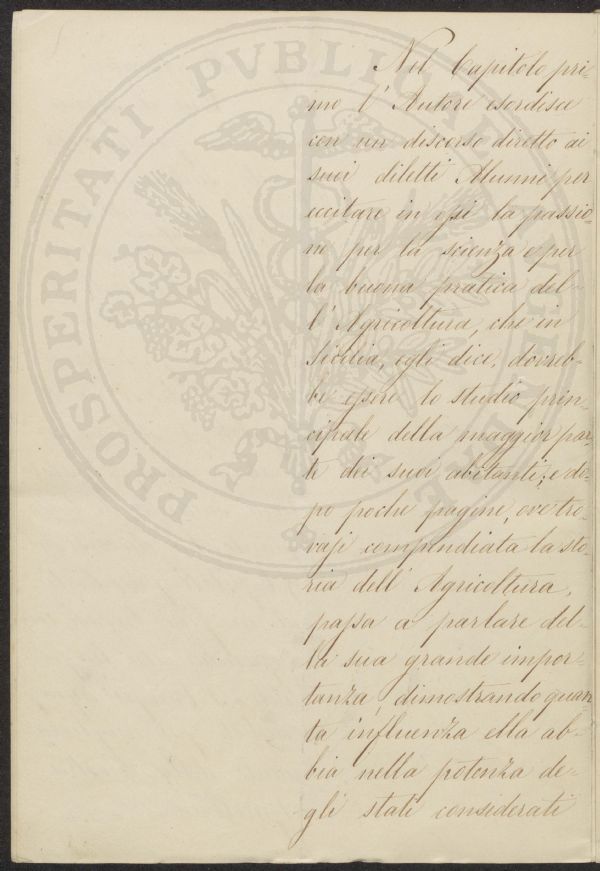 Nel Capitolo pri-
mo l'Autore esordisce
con un discorso diretto ai
suoi diletti Alunni per
eccitare in essi la passio-
ne per la scienza e per
la buona pratica del-
l'Agricoltura, che in
Sicilia, egli dice, dovreb-
be essere lo studio prin-
cipale della maggior par-
te dei suoi abitanti; e do-
po poche pagine, ove tro-
vasi compendiata la sto-
ria dell'Agricoltura,
passa a parlare del-
la sua grande impor-
tanza, dimostrando quan-
ta influenza ella ab-
bia nella potenza de-
gli stati considerati
PROSPERITATI PUBLICAE